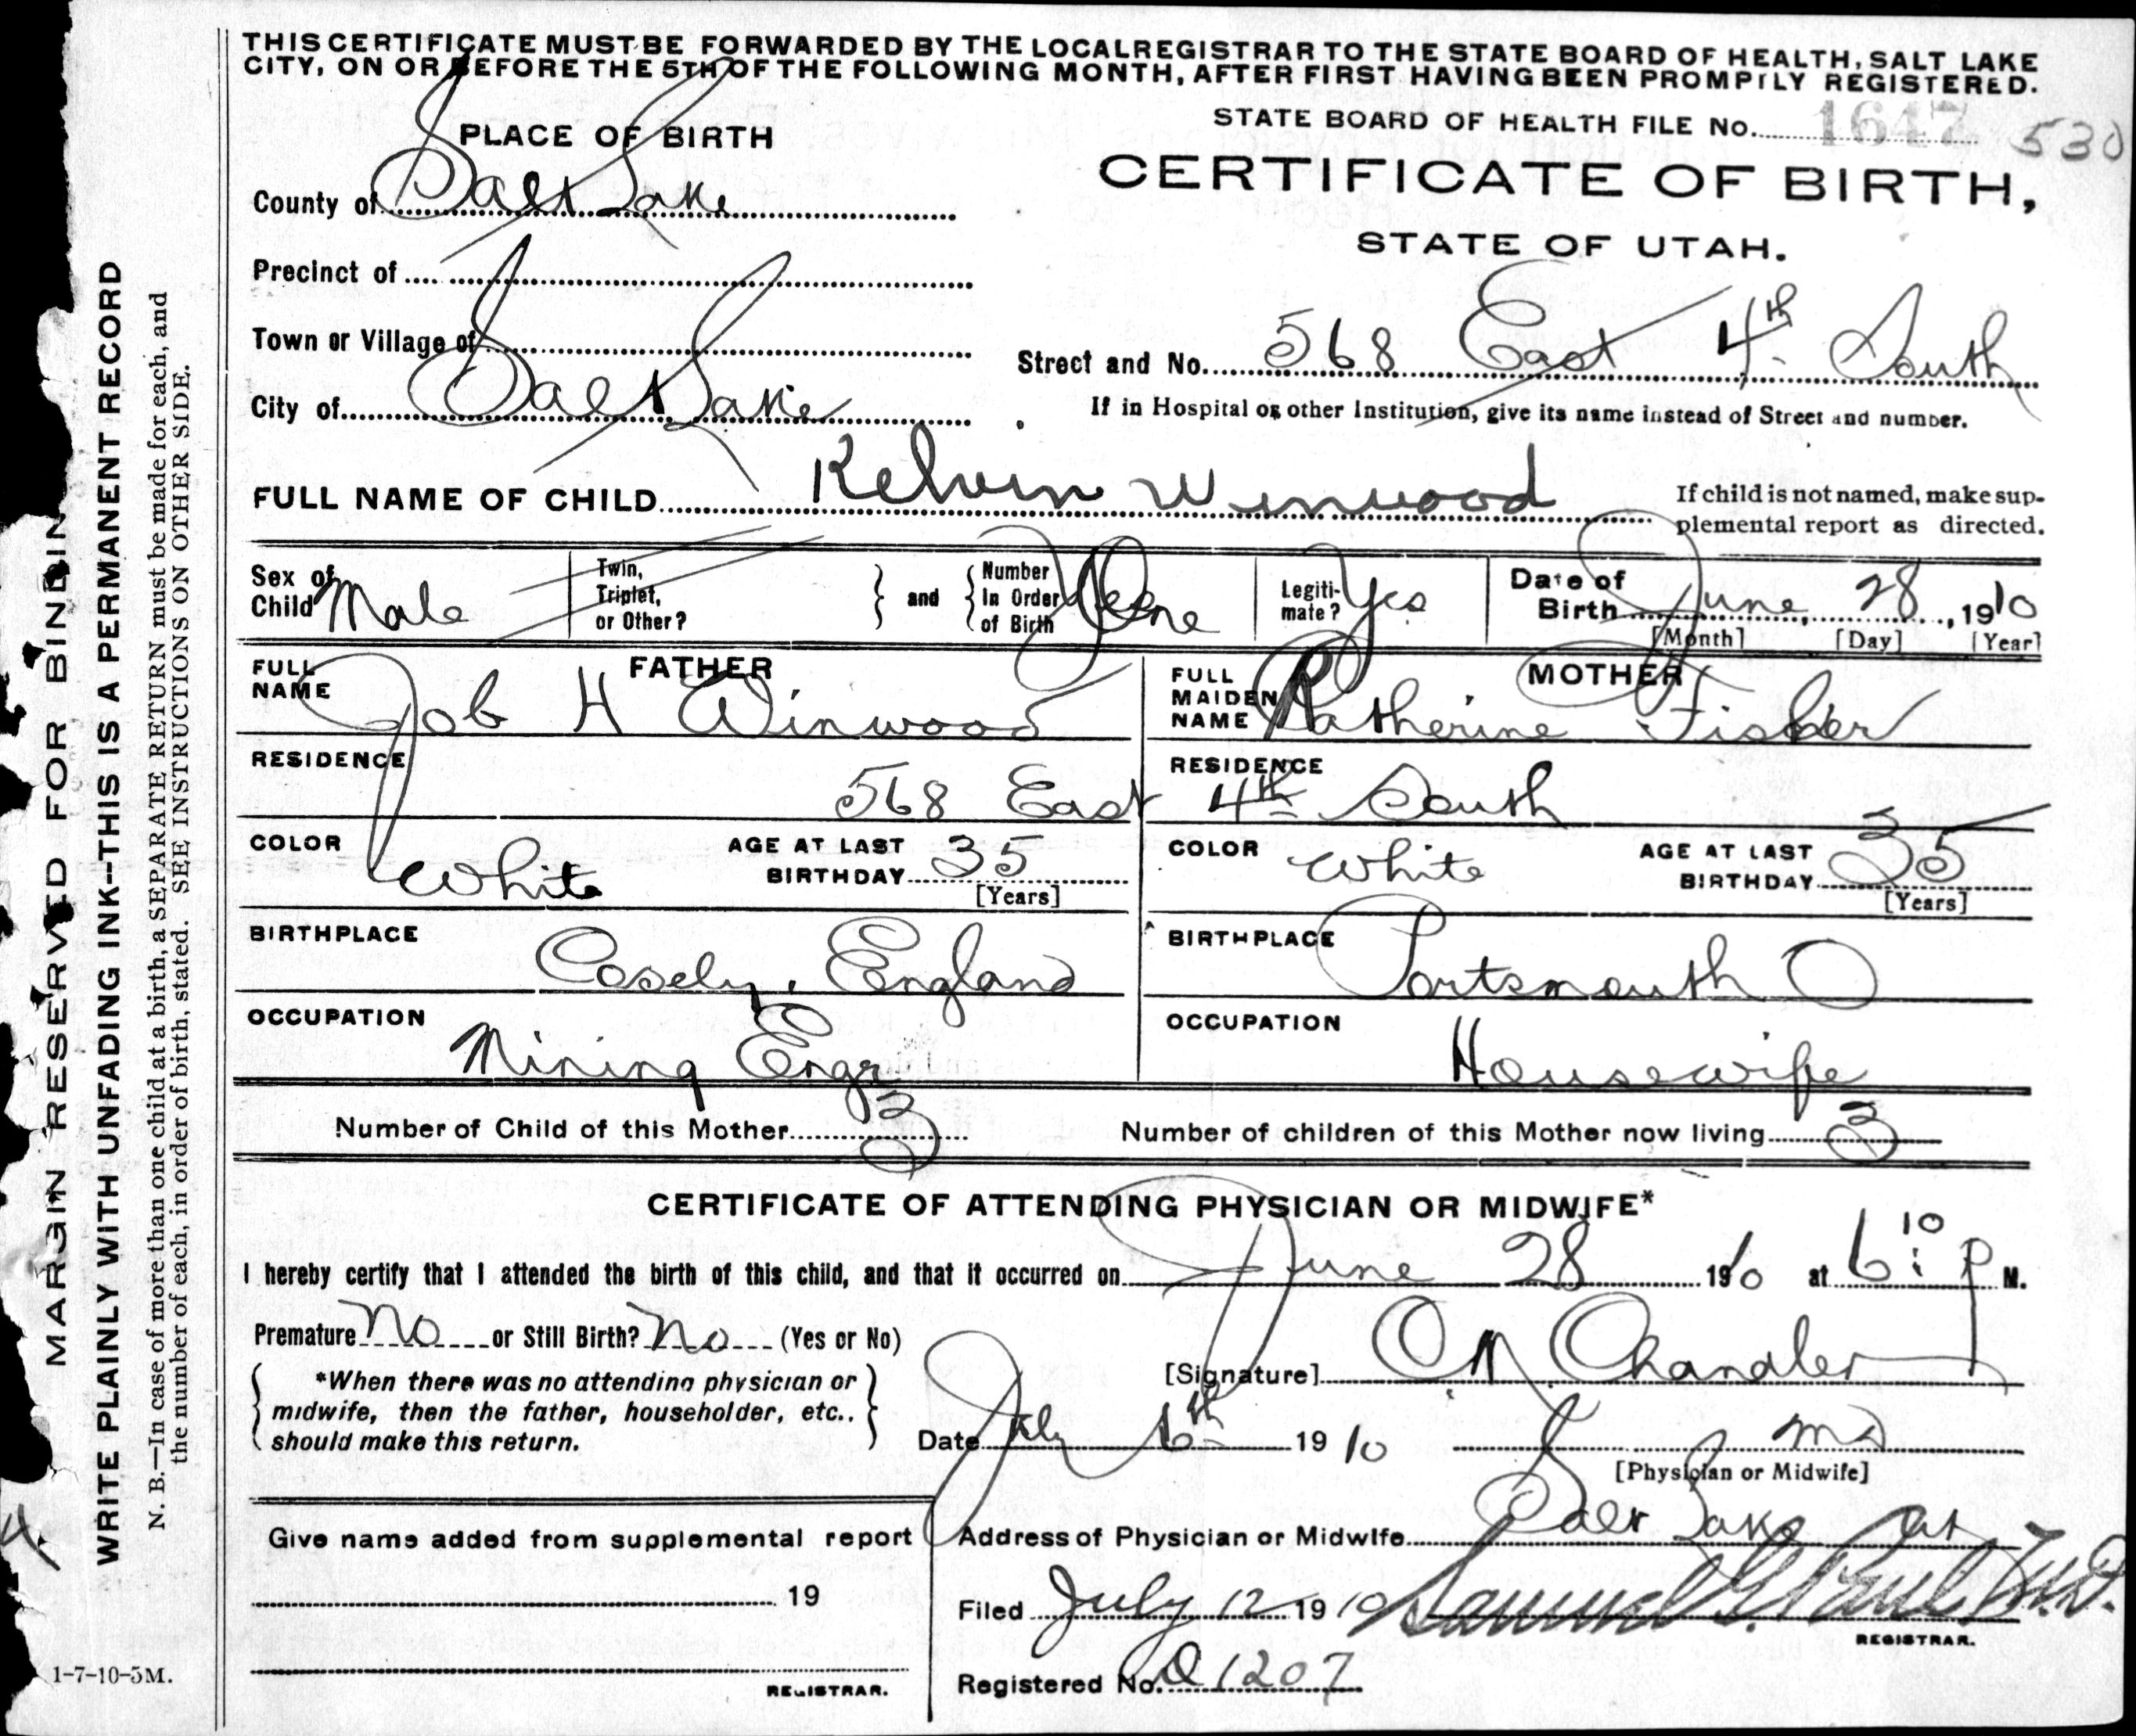 THIS CERTIFICATE MUST BE FORWARDED BY THE LOCAL REGISTRAR TO THE STATE BOARD OF HEALTH, SALT LAKE
CITY, ON OR BEFORE THE 5TH OF THE FOLLOWING MONTH, AFTER FIRST HAVING BEEN PROMPTLY REGISTERED.
STATE BOARD OF HEALTH FILE No. 1647 530
PLACE OF BIRTH
CERTIFICATE OF BIRTH,
STATE OF UTAH.
County of Salt Lake
Precinct of
Town or Village of
Street and No. 568 East 4th South
City of Salt Lake
If in Hospital or other Institution, give its name instead of Street and number.
FULL NAME OF CHILD Kelvin Winwood
If child is not named, make sup-
plemental report as directed.
Sex of Child Male
Twin, Triplet, or Other?
and
Number In Order of Birth One
Legiti-mate? Yes
Date of Birth June 28, 1910
[Month] [Day] [Year]
FATHER
FULL NAME Job H Winwood
MOTHER
FULL MAIDEN NAME Katherine Fisher
RESIDENCE
RESIDENCE
568 East 4th South
COLOR White
AGE AT LAST BIRTHDAY 35
[Years]
COLOR White
AGE AT LAST BIRTHDAY 35
[Years]
BIRTHPLACE Cosely, England
BIRTHPLACE Portsmouth O
OCCUPATION Mining Engr
OCCUPATION Housewife
Number of Child of this Mother 3
Number of children of this Mother now living 3
CERTIFICATE OF ATTENDING PHYSICIAN OR MIDWIFE*
I hereby certify that I attended the birth of this child, and that it occurred on June 28 1910 at 6:10 P M.
Premature No or Still Birth? No (Yes or No)
[Signature] Chandler
*When there was no attending physician or
midwife, then the father, householder, etc.,
should make this return.
Date July 6th 1910
MD
[Physician or Midwife]
Give name added from supplemental report
Address of Physician or Midwife Salt Lake
19
Filed July 12 1910 Samuel G. Paul M.D.
REGISTRAR.
REGISTRAR.
Registered No. 1207
MARGIN RESERVED FOR BINDIN
WRITE PLAINLY WITH UNFADING INK--THIS IS A PERMANENT RECORD
N. B.—In case of more than one child at a birth, a SEPARATE RETURN must be made for each, and
the number of each, in order of birth, stated. SEE INSTRUCTIONS ON OTHER SIDE.
1-7-10-5M.